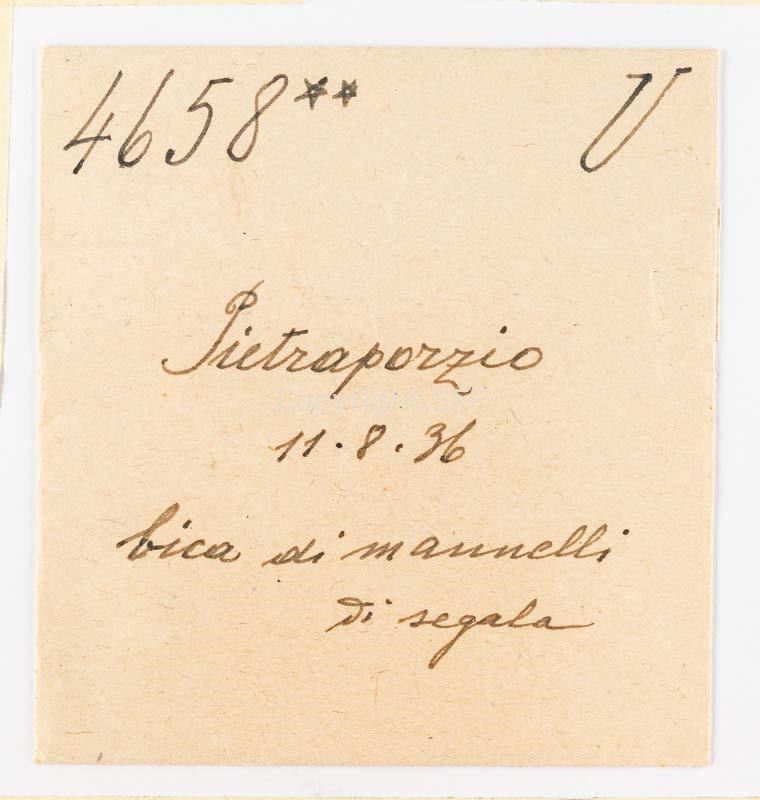 4658** U
Pietraporzio
11.8.36
bica di mannelli
di segala